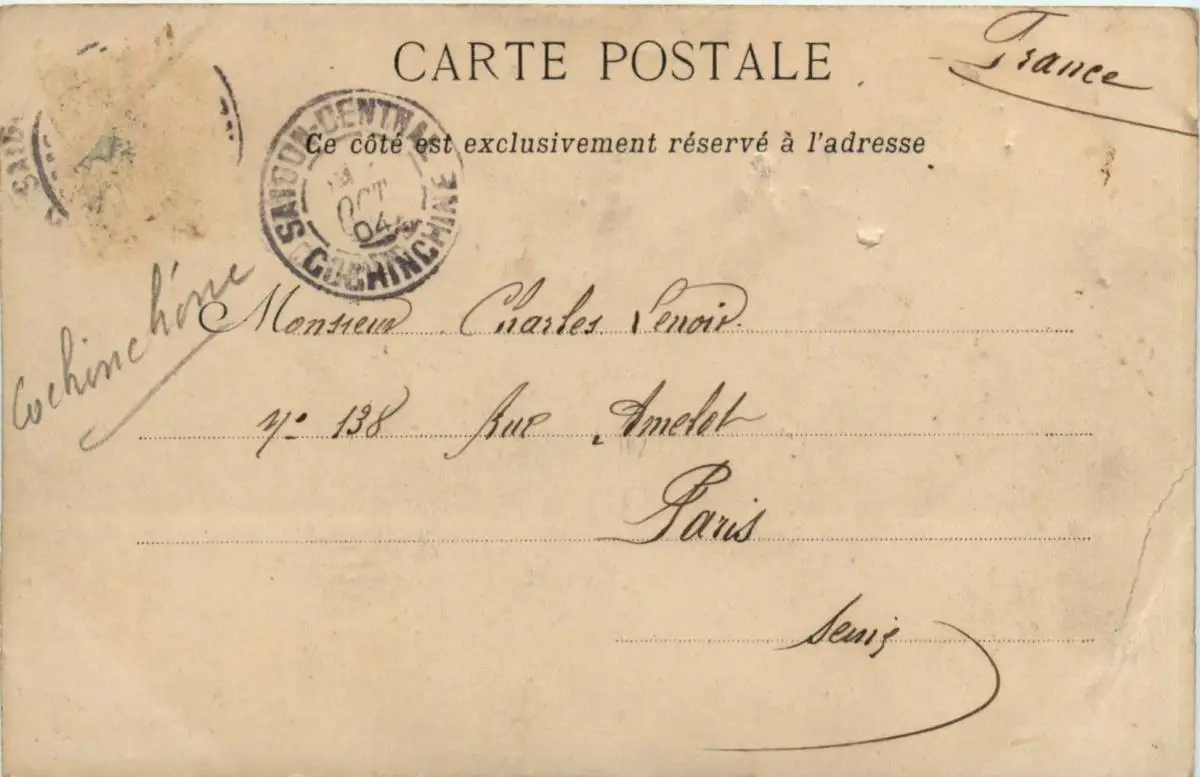 CARTE POSTALE
France
Ce côté est exclusivement réservé à l'adresse
SAIGON-CENTRAL
OCT
04
COCHINCHINE
SAIG
Cochinchine
Monsieur Charles Lenoir
Nº 138 Rue Amelot
Paris
Seine